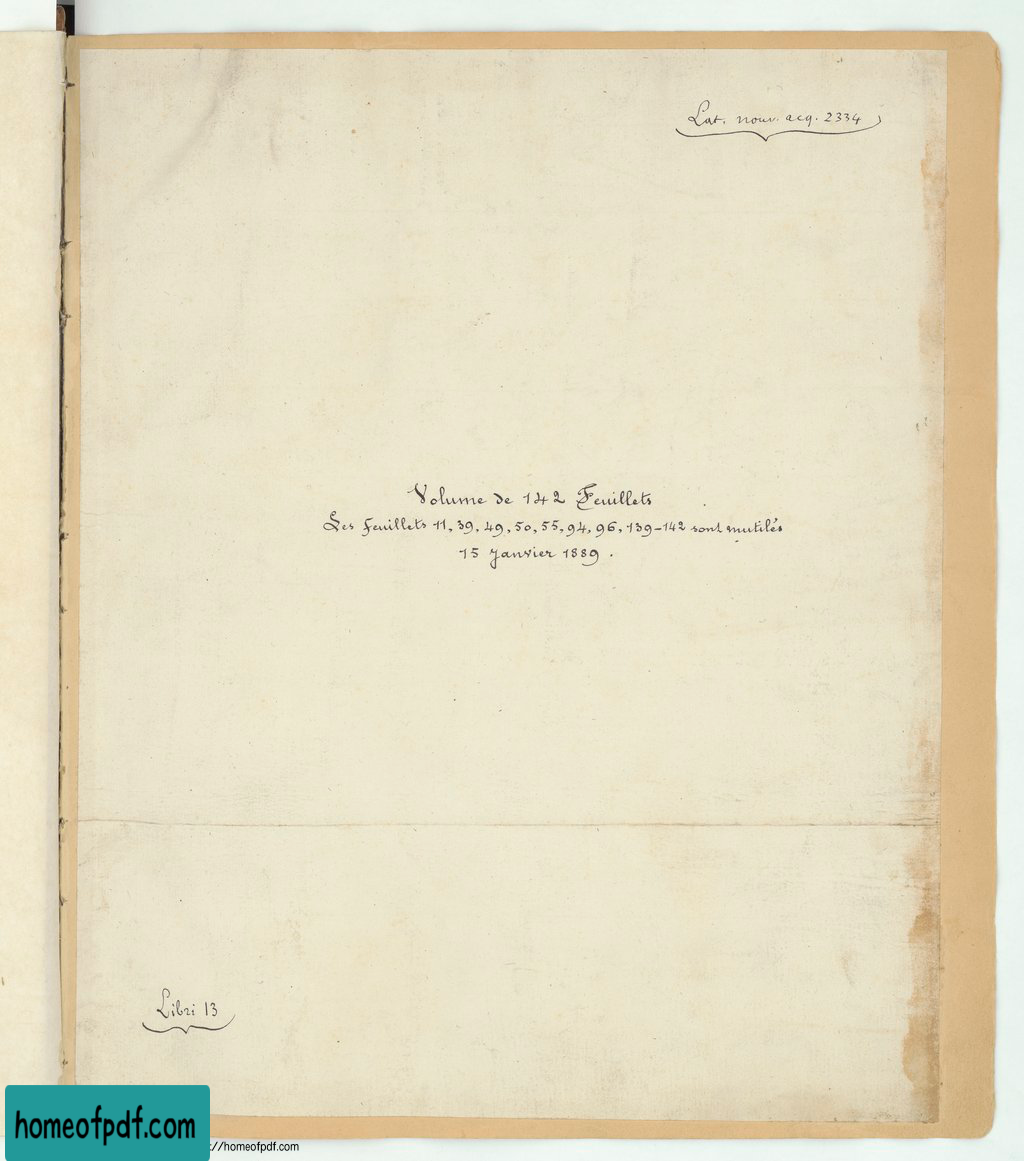 Lat. nouv. acq. 2334
Volume de 142 Feuillets
Les Feuillets 11, 39, 49, 50, 55, 94, 96, 139-142 sont mutilés
15 Janvier 1889.
Libri 13
homeofpdf.com
://homeofpdf.com